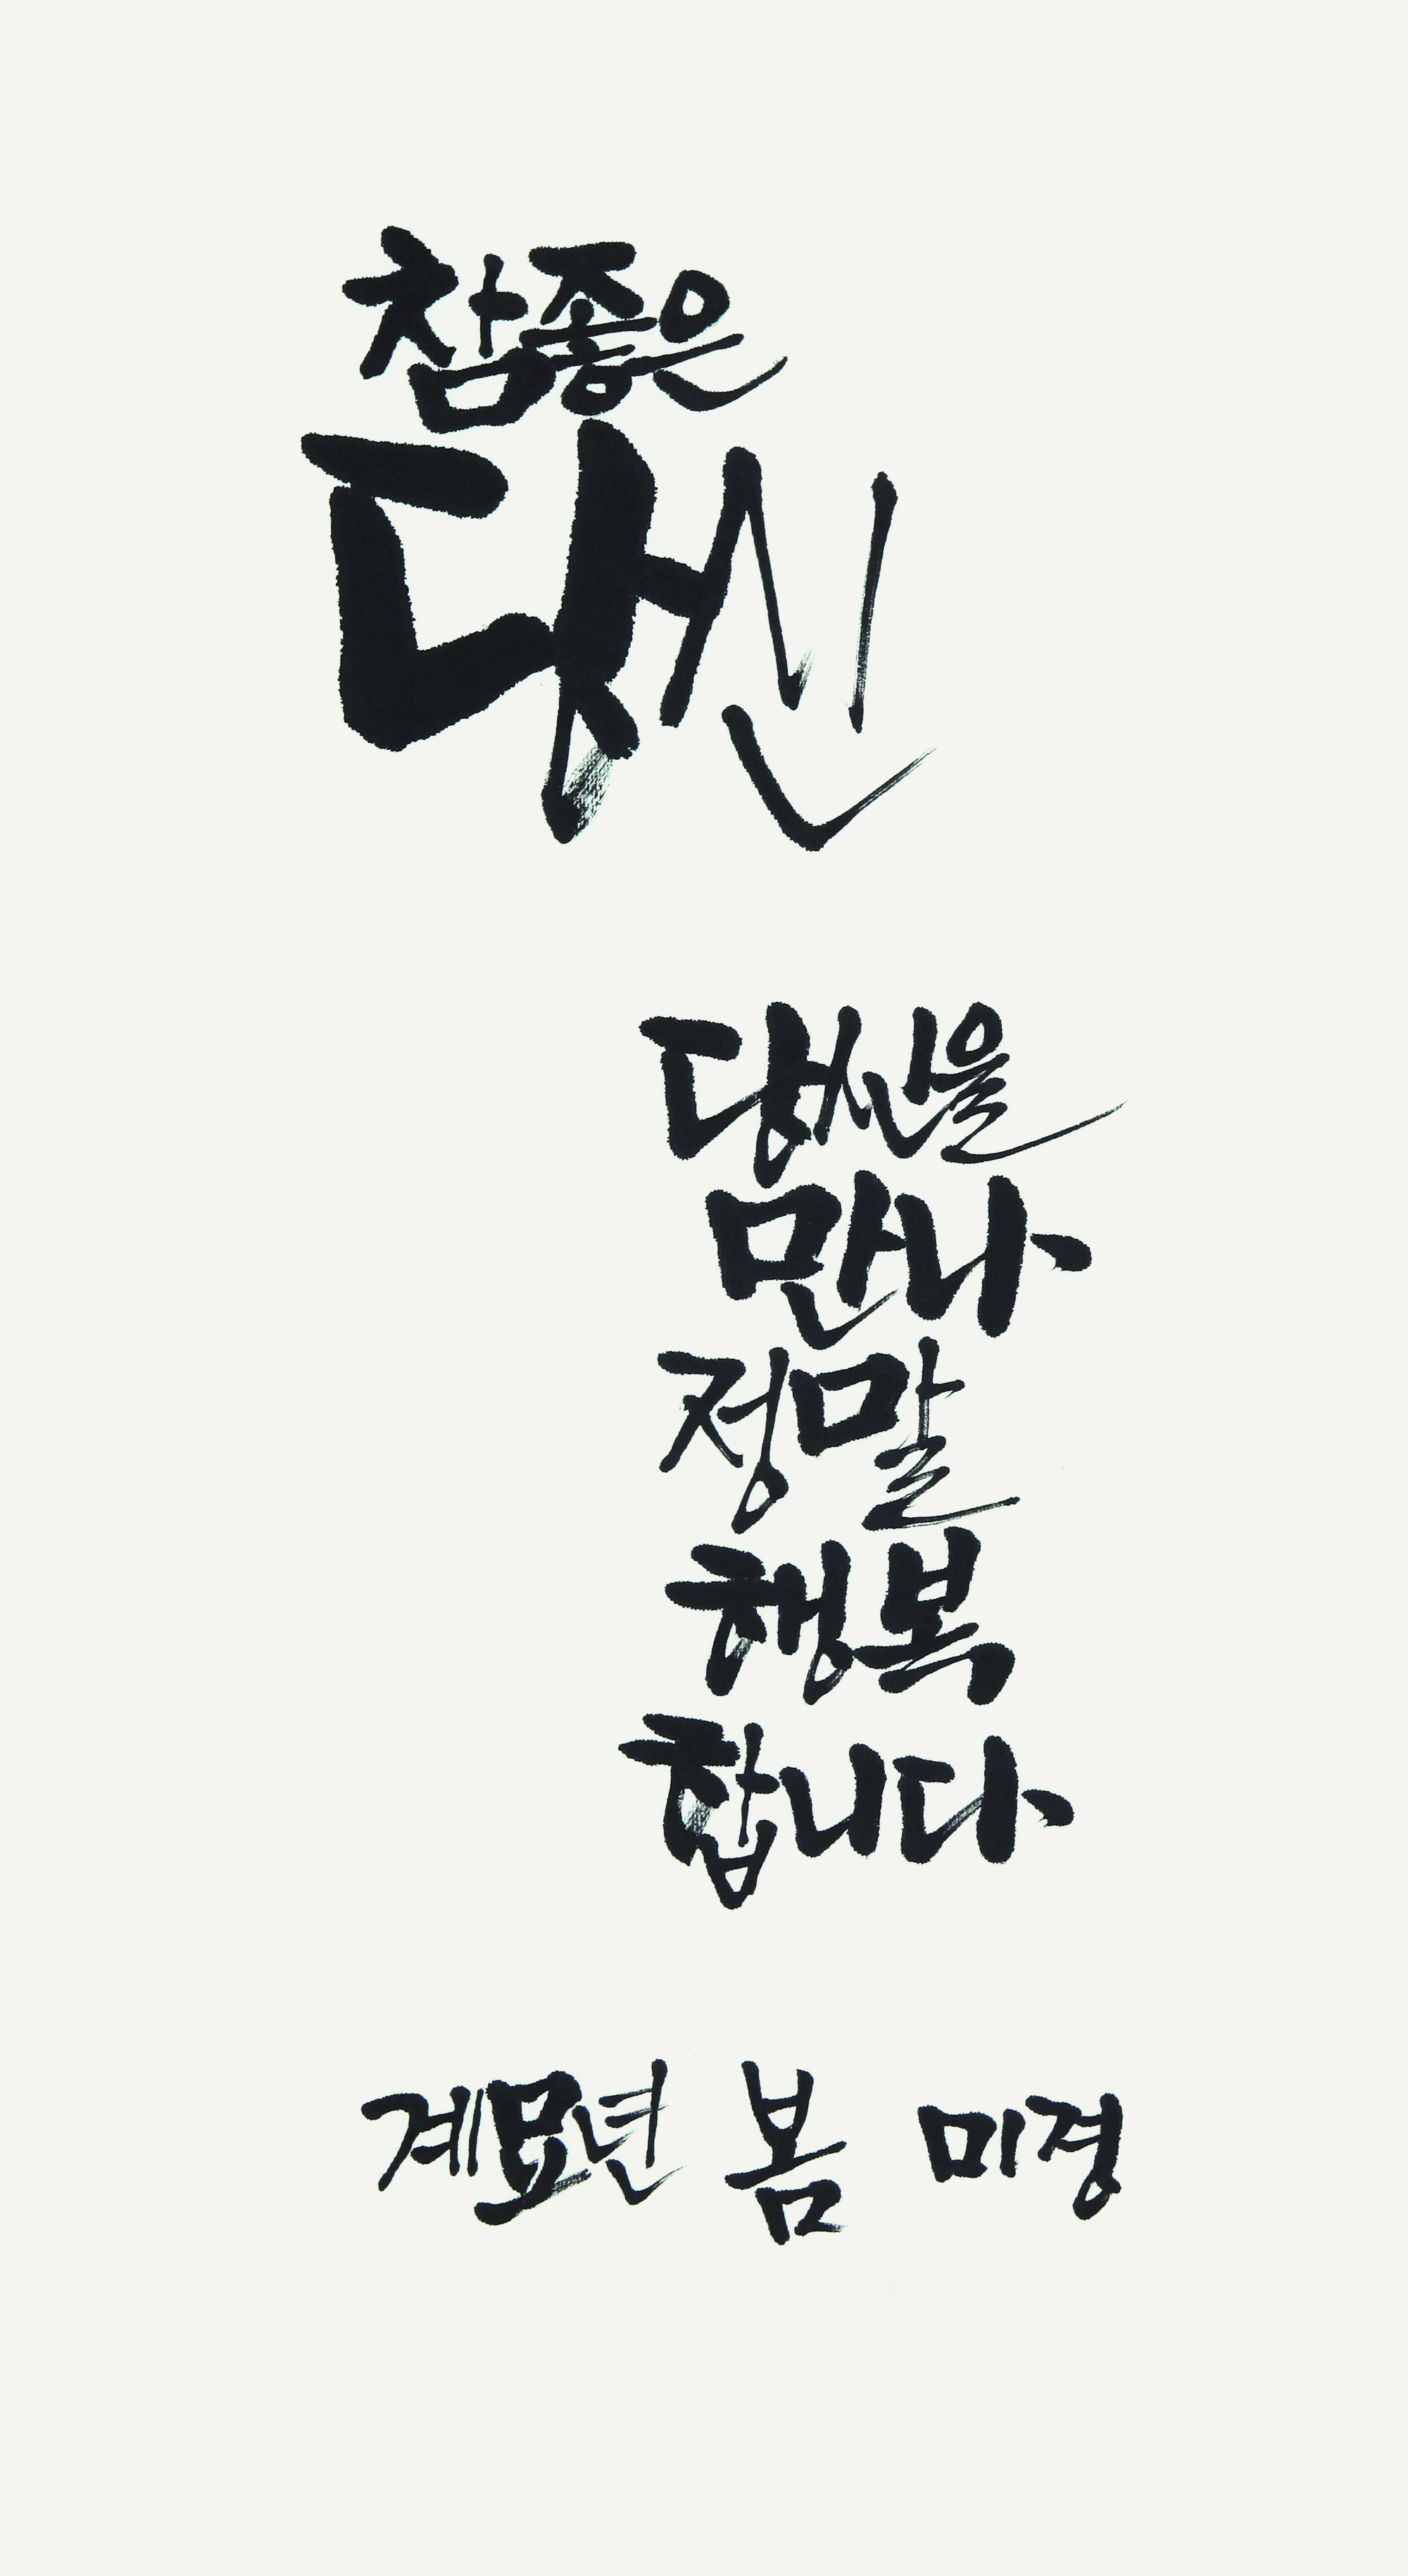 참좋은
당신
당신을
만나
정말
행복
합니다
계묘년 봄 미경